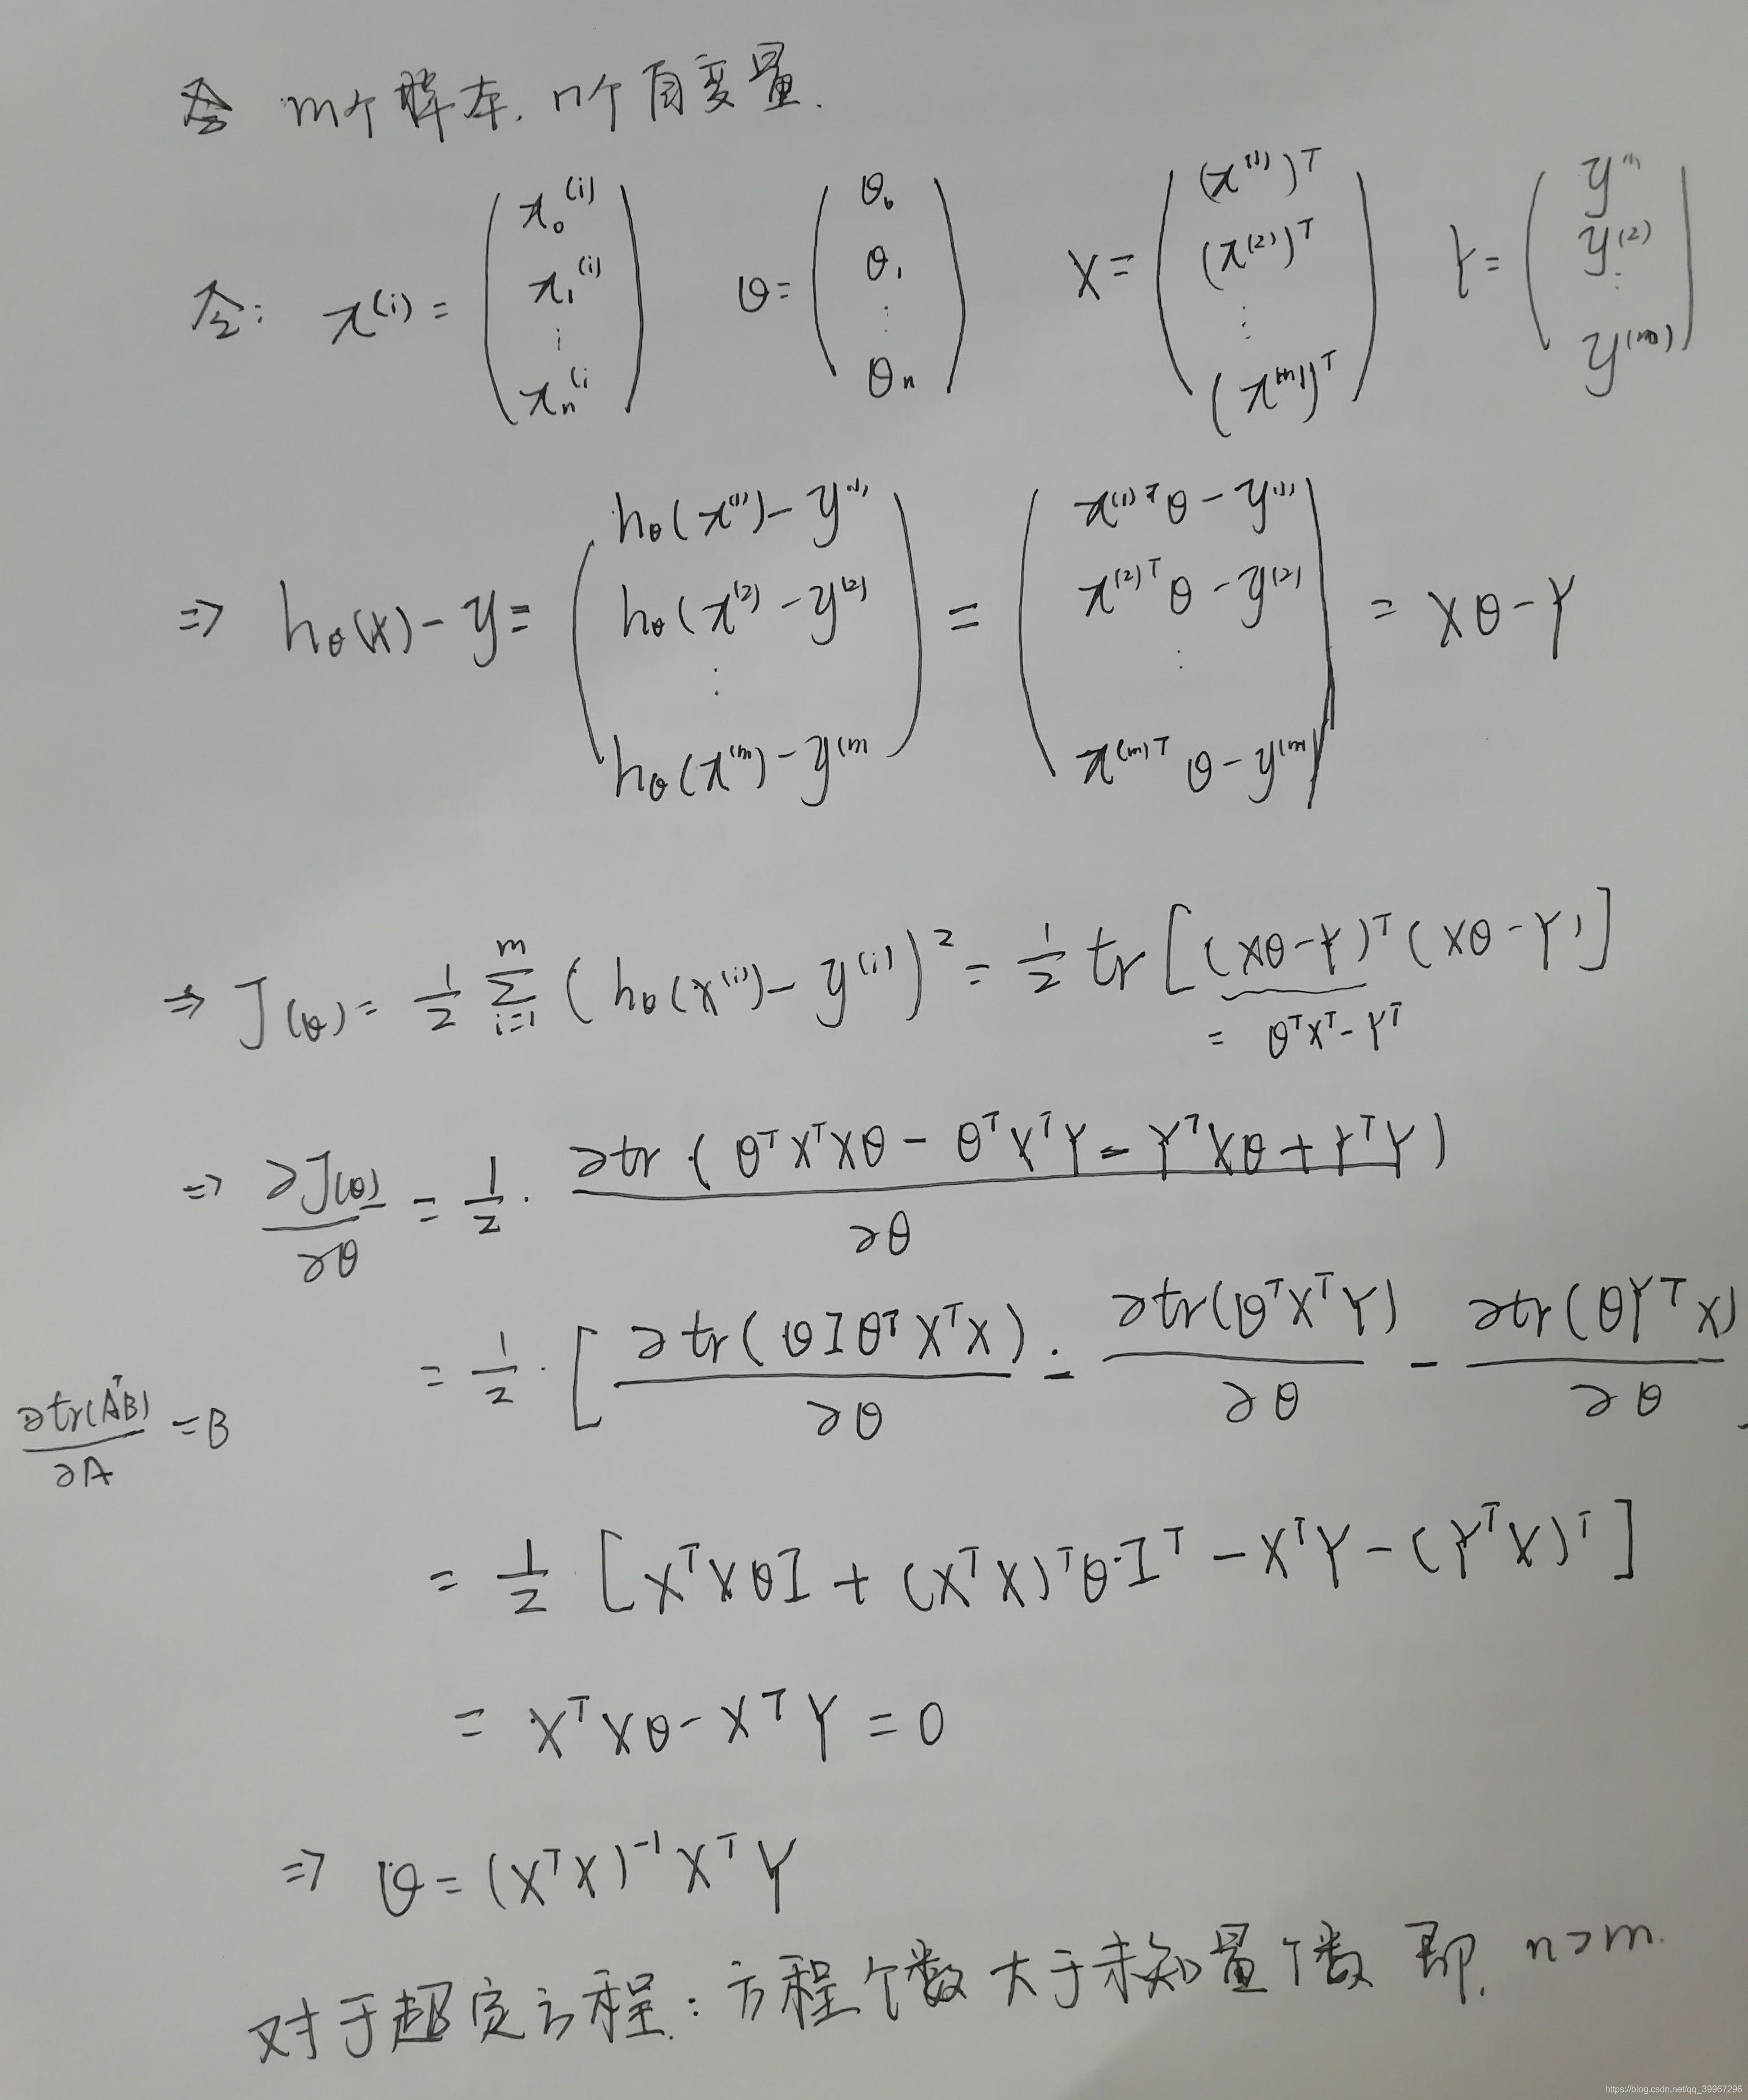 令 m个样本, n个自变量.
令: x^(i) = (x₀^(i) x₁^(i) ⋮ xₙ^(i) θ = (θ₀ θ₁ ⋮ θₙ) X = ((x^(1))^T (x^(2))^T ⋮ (x^(m))^T) Y = (y^(1) y^(2) ⋮ y^(m))
⇒ h_θ(X) - y = (h_θ(x^(1)) - y^(1) h_θ(x^(2)) - y^(2) ⋮ h_θ(x^(m)) - y^(m) = (x^(1)T θ - y^(1) x^(2)T θ - y^(2) ⋮ x^(m)T θ - y^(m)) = Xθ - Y
⇒ J(θ) = 1/2 Σ_{i=1}^{m} (h_θ(x^(i)) - y^(i))² = 1/2 tr[(Xθ - Y)^T (Xθ - Y)]
= θ^T X^T - Y^T
⇒ ∂J(θ)/∂θ = 1/2 · ∂tr(θ^T X^T Xθ - θ^T X^T Y - Y^T Xθ + Y^T Y)/∂θ
= 1/2 · [∂tr(θIθ^T X^T X)/∂θ - ∂tr(θ^T X^T Y)/∂θ - ∂tr(θY^T X)/∂θ
∂tr(A^T B)/∂A = B
= 1/2 [X^T XθI + (X^T X)^T θ·I^T - X^T Y - (Y^T X)^T]
= X^T Xθ - X^T Y = 0
⇒ θ = (X^T X)^-1 X^T Y
对于超定方程: 方程个数大于未知量个数 即. n>m.
https://blog.csdn.net/qq_39967296